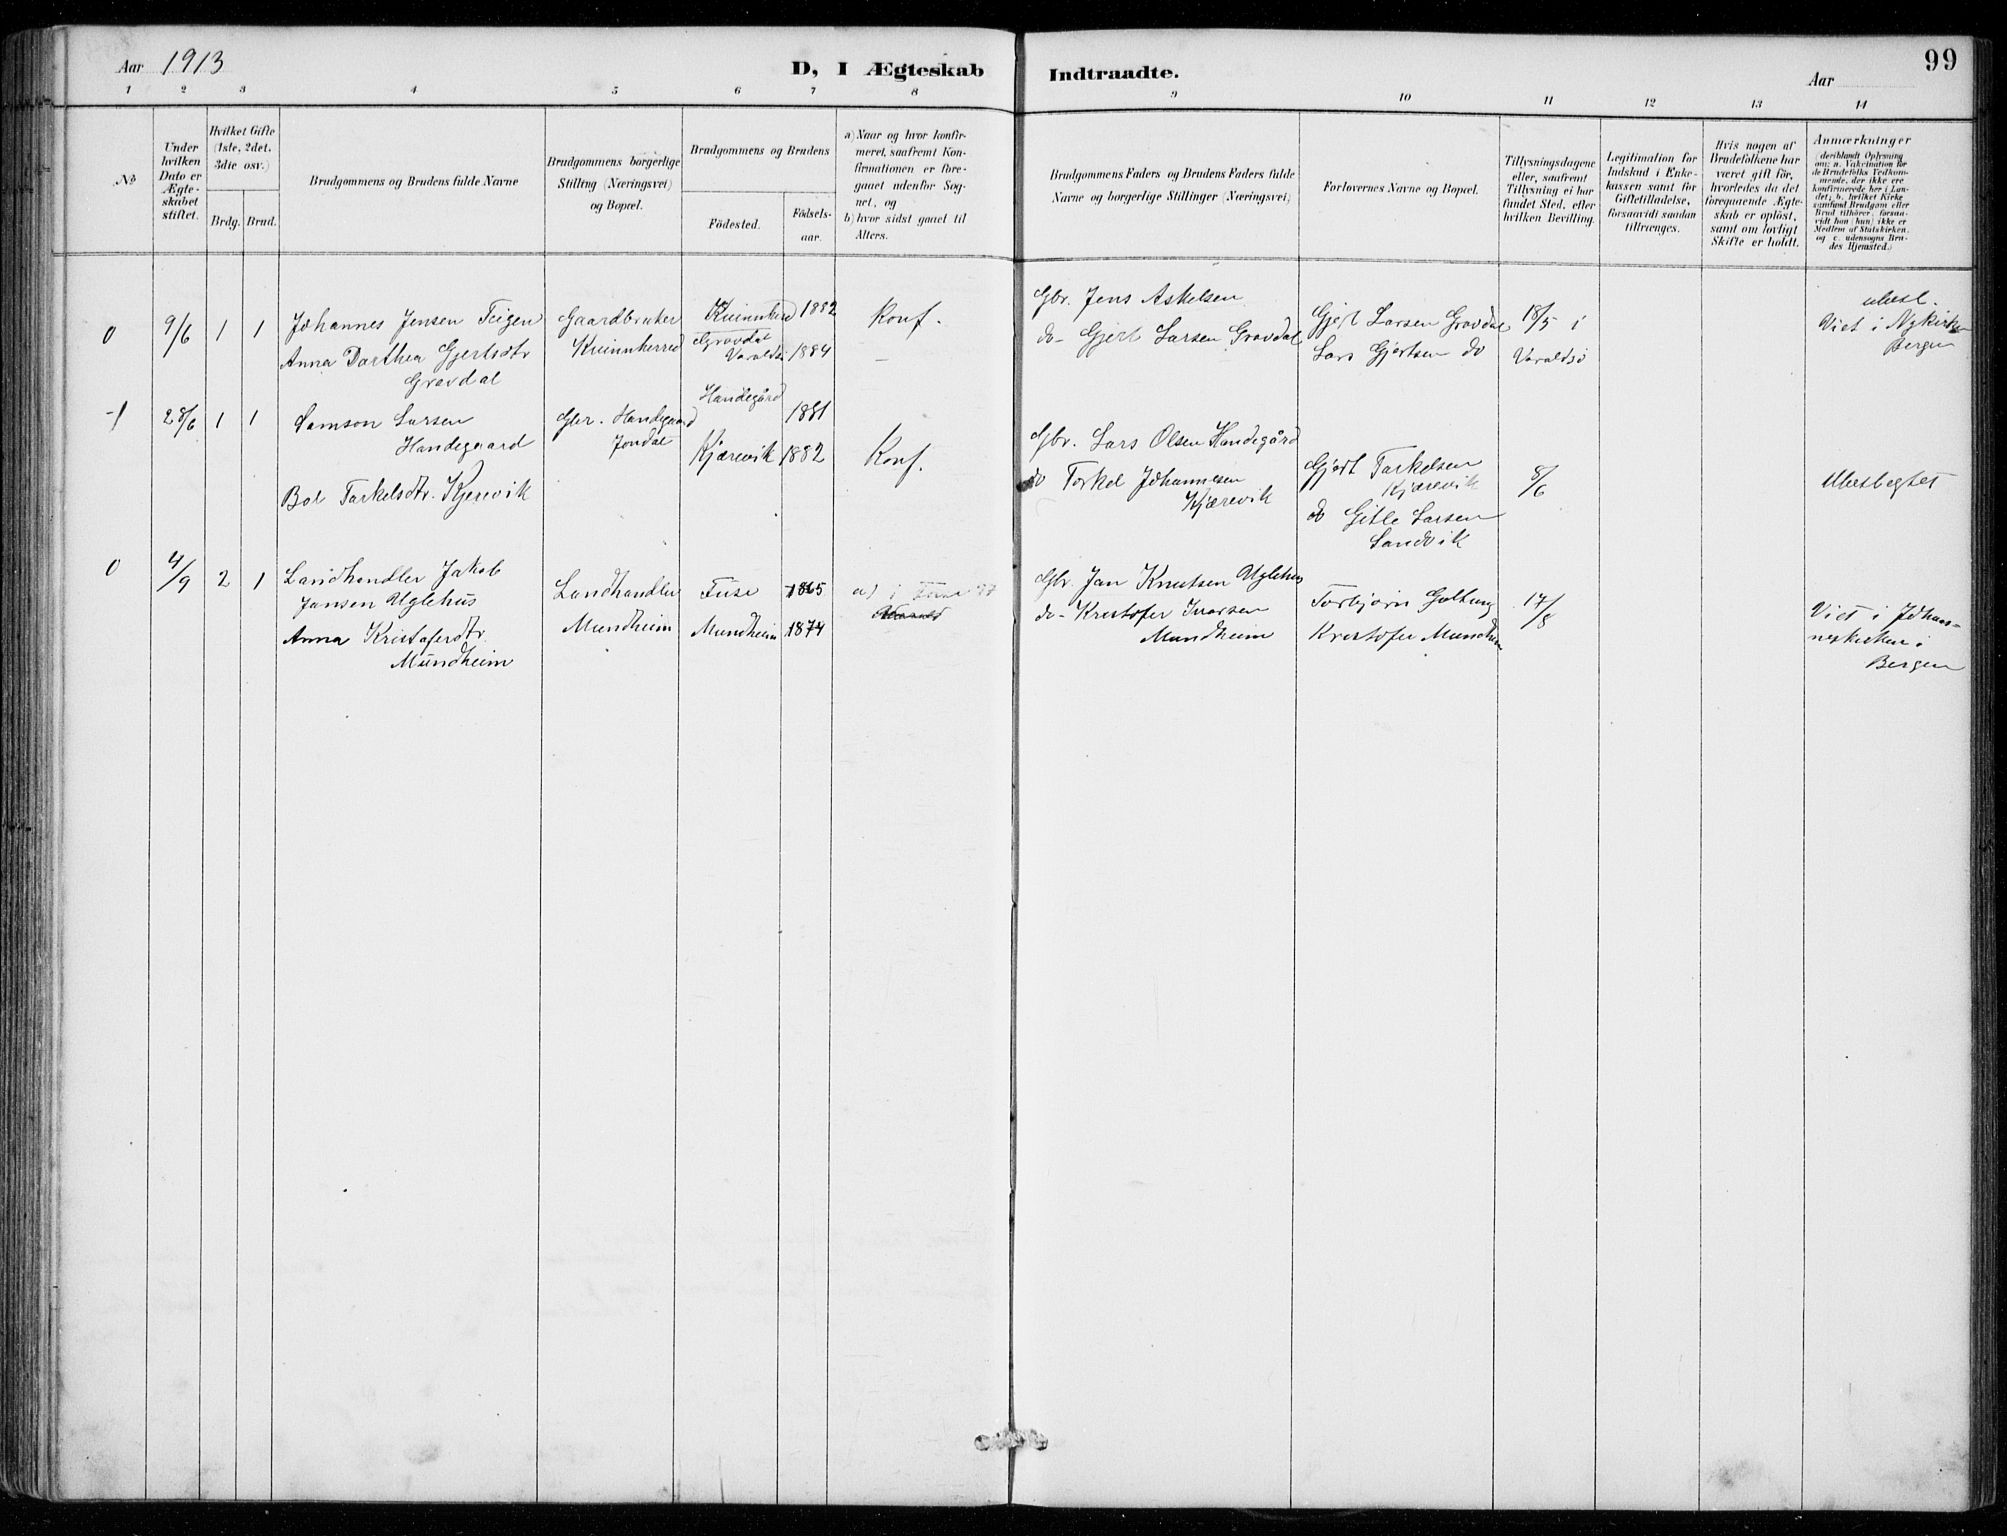 Aar 1913
D, I Ægteskab Indtraadte.
99
Aar
1 2 3 4 5 6 7 8 9 10 11 12 13 14
No
Under hvilken Dato er Ægteskabet stiftet.
Hvilket Gifte (1ste, 2det, 3die osv.)
Brdg. Brud.
Brudgommens og Brudens fulde Navne
Brudgommens borgerlige Stilling (Næringsvei) og Bopæl.
Brudgommens og Brudens
Fødested.
Fødselsaar.
a) Naar og hvor konfirmeret, saafremt Konfirmationen er foregaaet udenfor Sognet, og
b) hvor sidst gaaet til Alters.
Brudgommens Faders og Brudens Faders fulde Navne og borgerlige Stillinger (Næringsvei)
Forlovernes Navne og Bopæl.
Tillysningsdagene eller, saafremt Tillysning ei har fundet Sted, efter hvilken Bevilling.
Legitimation for Indskud i Enkekassen samt for Giftetilladelse, forsaavidt saadan tiltrænges.
Hvis nogen af Brudefolkene har været gift før, hvorledes da det foregaaende Ægteskab er opløst, samt om lovligt Skifte er holdt.
Anmærkninger
(deriblandt Oplysning om: a. Vakcination for de Brudefolks Vedkommende, der ikke ere konfirmerede her i Landet; b. hvilket Kirkesamfund Brudgom eller Brud tilhører, forsaavidt han (hun) ikke er Medlem af Statskirken, og c. udensogns Brudes Hjemsted.)
0 9/6 1 1
Johannes Jensen Teigen
Anna Dorthea Gjertsdtr
Gravdal
Gaardbruker
Kvinnherred
Kvinnherred 1882
Gravdal
Varaldsø 1884
Konf.
—
Gbr. Jens Askelsen
do - Gjert Larsen Gravdal
Gjert Larsen Gravdal
Lars Gjertsen do
18/5 i
Varaldsø
ubesl.
Viet i Nykirken
Bergen
1 28/6 1 1
Samson Larsen
Handegaard
Bol Torkelsdtr. Kjerevik
Gbr. Handegaard
Jondal
Handegård 1881
Kjærevik 1882
Konf.
Gbr. Lars Olsen Handegård
do Torkel Johannesen
Kjærevik
Gjert Torkelsen
Kjærevik
do Gitle Larsen
Sandvik
8/6
Ubeslegtet
0 4/9 2 1
Landhandler Jakob
Jansen Uglehus
Anna Kristofersdtr.
Mundheim
Landhandler
Mundheim
Fuse 1865
Mundheim 1874
a) i Fuse
Gbr. Jan Knutsen Uglehus
do - Kristofer Ivarsen
Mundheim
Torbjørn Galtung
Kristofer Mundheim
17/8
Viet i Johanneskirken i
Bergen